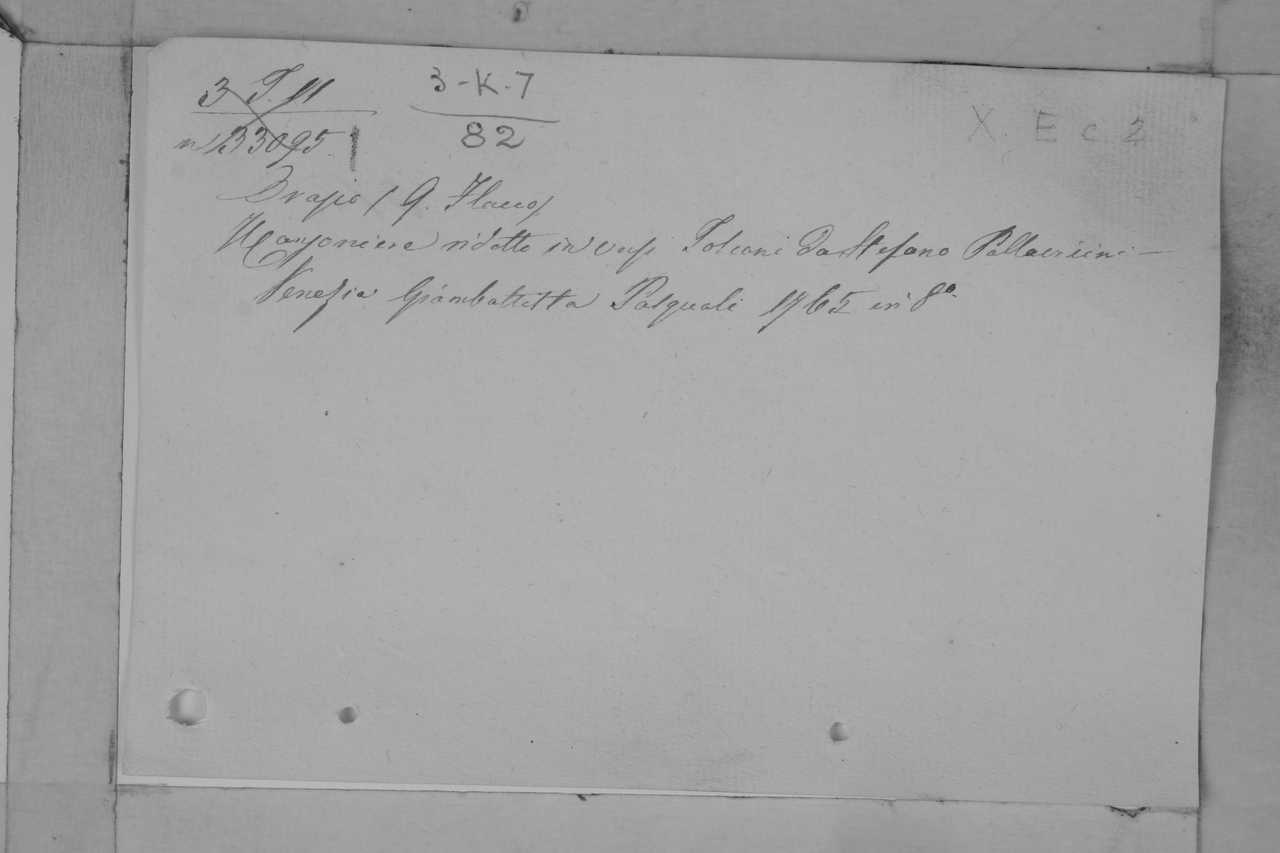 3 T. 11
n 33095
3-K.7
82
X. E c 2
Orazio (Q. Flacco)
Canzoniere ridotto in versi Toscani da Stefano Pallavicini -
Venezia Giambattista Pasquali 1765 in 8º